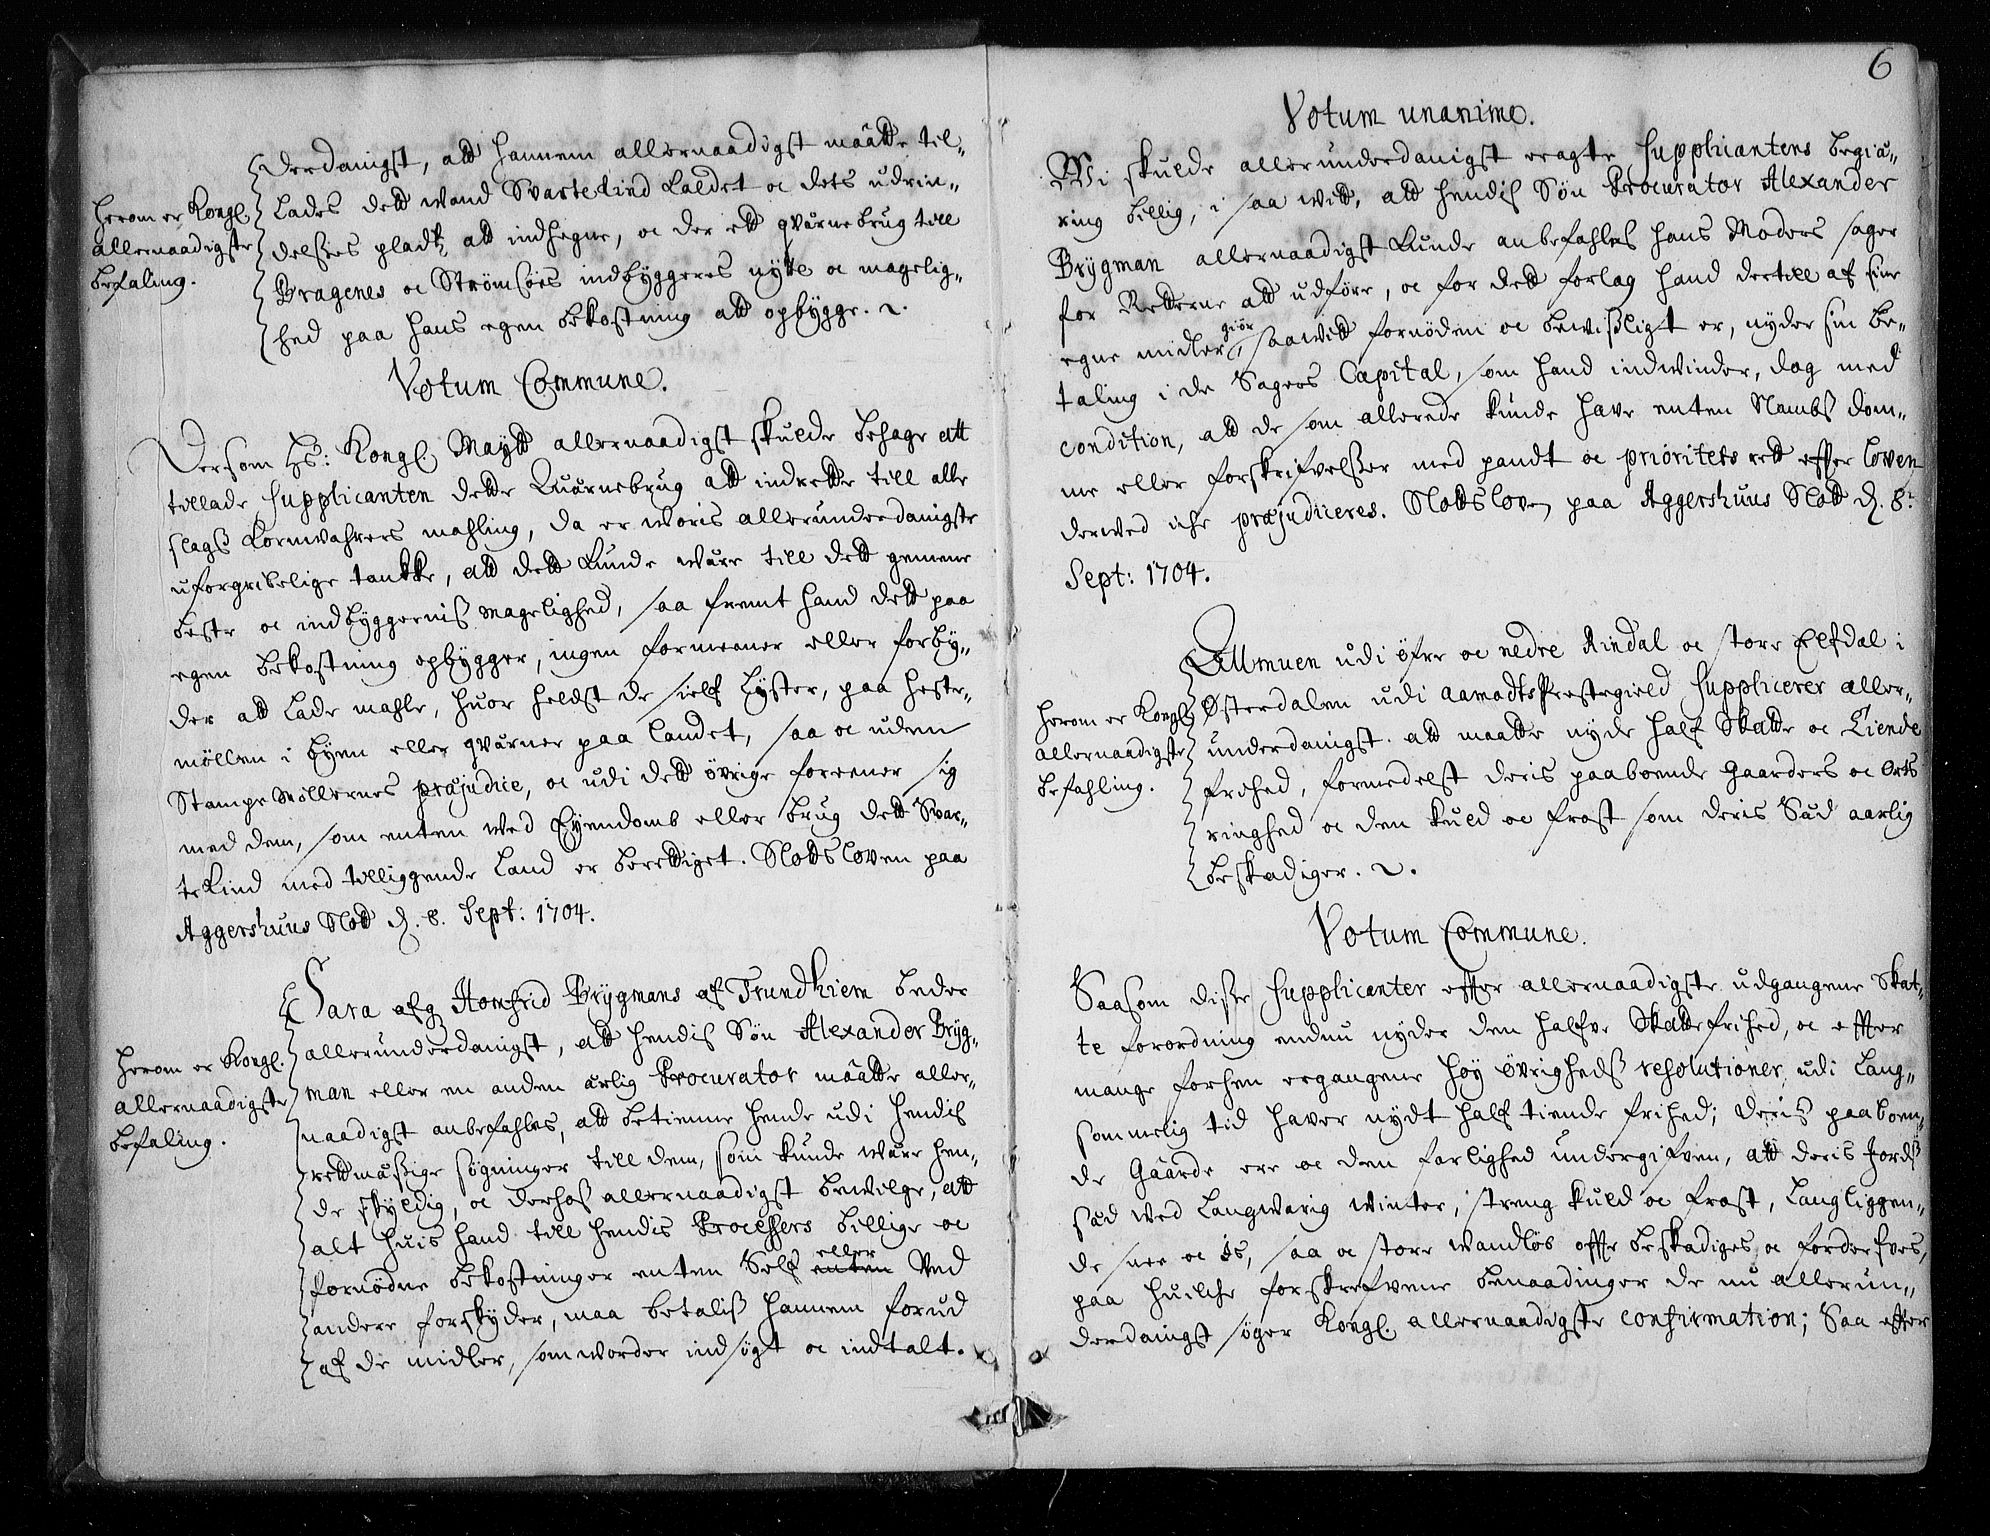 derdanigst, att hannem allernaadigst maatte til-
lades dett wand Svartekind kaldet oc dets udrin-
delsses pladtz att indhegne, oc der ett qvernebrug till
Bragenes oc Strömsöes indbyggeres nytte oc magelig-
hed paa hans egen bekostning att opbygge. 
herom er Kongl.
allernaadigste
befaling.
Votum Commune.
Dersom Hs: Kongl. Maytt allernaadigst skulde behage att
tillade Supplicanten dette Quernebrug att indrette till alle
slags Kornwahrers mahling, da er woris allerunderdanigste
uforgribelige tankke, att dett kunde were till dett gemene
beste oc indbyggernis magelighed, saa fremt hand dett paa
egen bekostning opbygger, ingen formeener eller forby-
der att lade mahle, huor heldst de sielf lyster, paa heste-
möllen i byen eller qverner paa landet, saa oc uden
Stampe Möllernes præjudice, oc udi dett övrige foreener sig
med dem, som enten wed Eyendomb eller brug dett Svar-
tekind med tilliggende Land er berettiget. Slottsloven paa
Aggershuus Slott d. 8. Sept: 1704.
Sara afg Homfrid Brÿgmans af Trundhiem beder
allerunderdanigst, att hendis Sön Alexander Brÿg-
man eller en anden ærlig Procurator maatte aller-
naadigst anbefahles, att betienne hende udi hendis
rettmæssige sögninger till dem, som kunde were hen-
de skyldig, oc derhos allernaadigst bewilge, att
alt huis hand till hendis Processers billige oc
fornödne bekostninger enten Self eller enten Ved
andere forskyder, maa betalis hannem forud
af de midler, som worder indsögt oc indtalt.
herom er Kongl.
allernaadigste
befaling.
6
Votum unanime.
Wi skulde allerunderdanigst eragte Supplicantens begiæ-
ring billig, i saa witt, att hendis Sön Procurator Alexander
Brÿgman allernaadigst kunde anbefahles hans Moders sager
for Retterne att udföre, oc for dett forlag hand dertill af sine
egne midler giör, saawitt fornöden oc bewisligt er, nyder sin be-
taling i de Sagers Capital, som hand indwinder, dog med
condition, att de som allerede kunde have enten Nambs dom-
me eller forskrifvelsser med pandt oc prioritets rett efter loven
derwed iche præjudiceres. Slottsloven paa Aggershuus Slott d. 8.
Sept: 1704.
Allmuen udi öfre oc nedre Rindal oc store Elfdal i
Østerdalen udi Aamodts Prestegield Supplicerer aller-
underdanigst att maatte nyde half Skatte oc Tiende
frihed, formedelst deris paaboende Gaarders oc Orts
ringhed oc den kuld oc frost som deris Sæd aarlig
beskadiger. 
herom er Kongl
allernaadigste
befahling.
Votum Commune.
Saasom disse Supplicanter efter allernaadigste udgangene Skat-
te forordning endnu nyder den halfve Skattefrihed, oc efter
mange forhen ergangene höy övrigheds resolutioner, udi lang-
sommelig tid haver nydt half tiende frihed; deris paaboen-
de Gaarde ere oc dem farlighed undergifven, att deris Jords
sæd wed langwarig winter, streng kuld oc frost, langliggen-
de snee oc iis, saa oc store wandlös ofte beskadiges oc forderfves,
paa huilche forskrefvene benaadinger de nu allerun-
derdanigst söger Kongl. allernaadigste confirmation; Saa efter